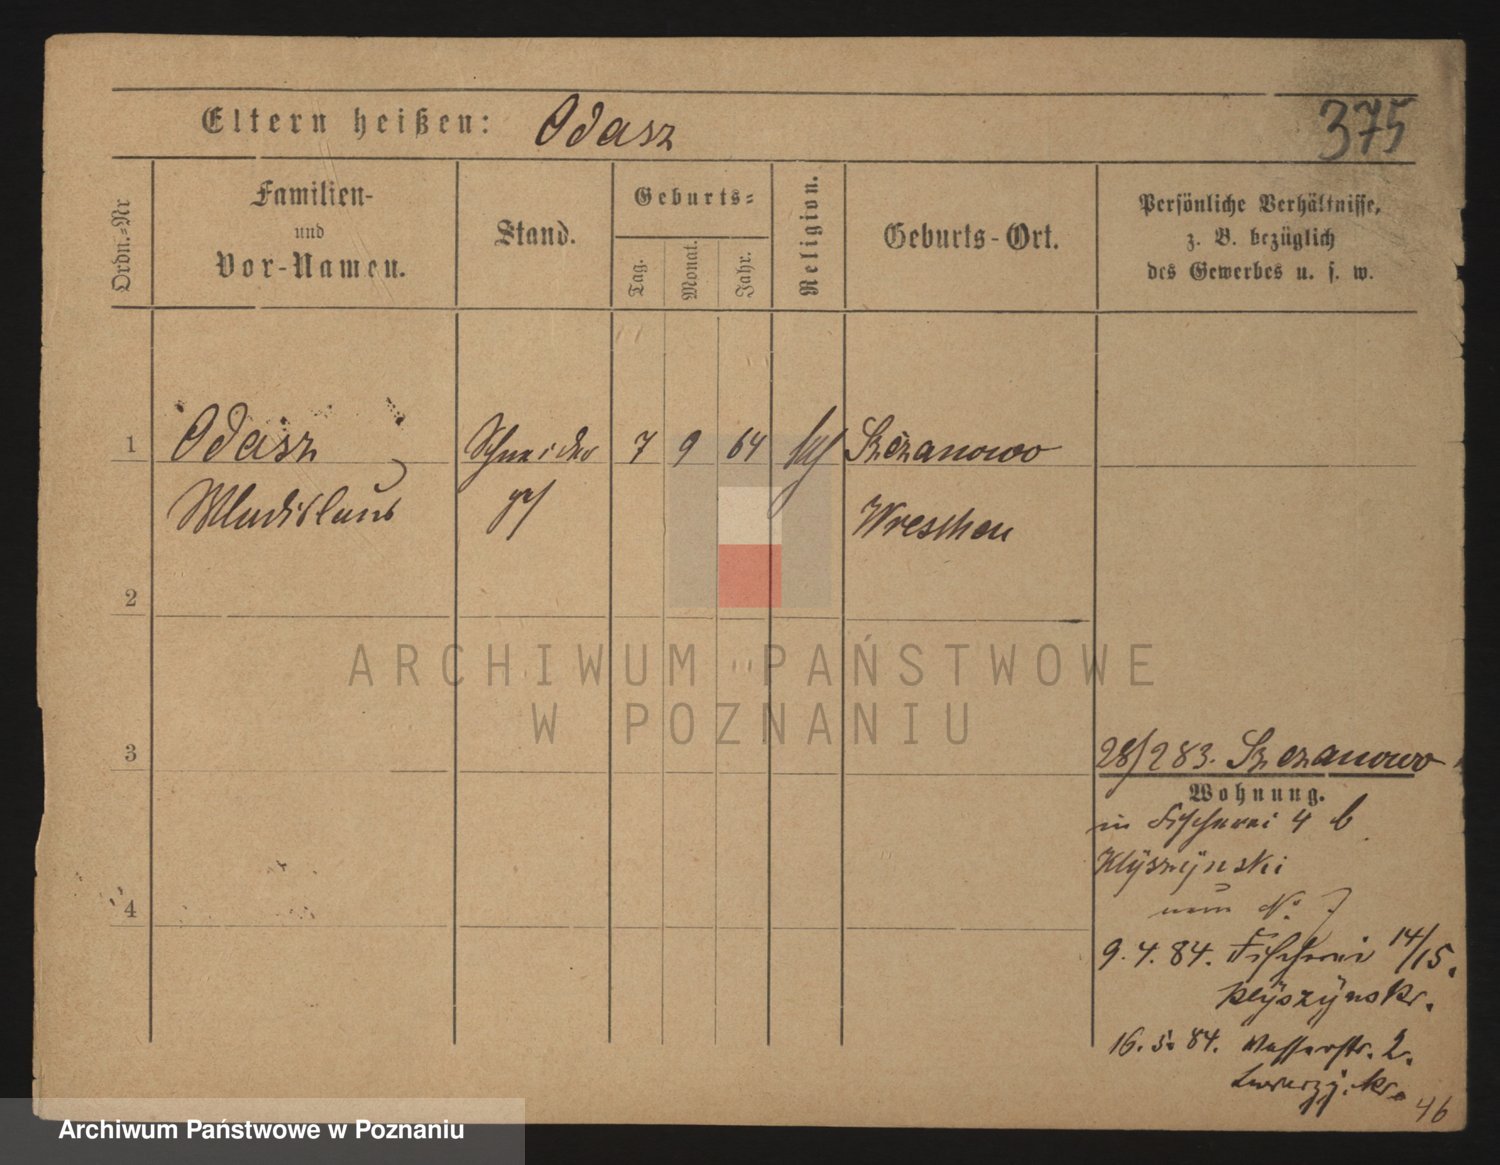 Eltern heißen: Odasz
375
Ordn.-Nr
Familien-
und
Vor-Namen.
Stand.
Geburts=
Tag.
Monat.
Jahr.
Religion.
Geburts-Ort.
Persönliche Verhältnisse,
z. B. bezüglich
des Gewerbes u. s. w.
1 Odasz Schneider 7 9 64 Szczanowo
Wladislaus Wreschen
2
ARCHIWUM PAŃSTWOWE
W POZNANIU
3
28/2 83. Szczanowo
Wohnung.
in Fischerei 4 b
Klyszynski
4
No 7
9. 4. 84. Fischerei 14/15.
Klyszynski.
16. 5. 84. Wasserstr. 2.
46
Archiwum Państwowe w Poznaniu